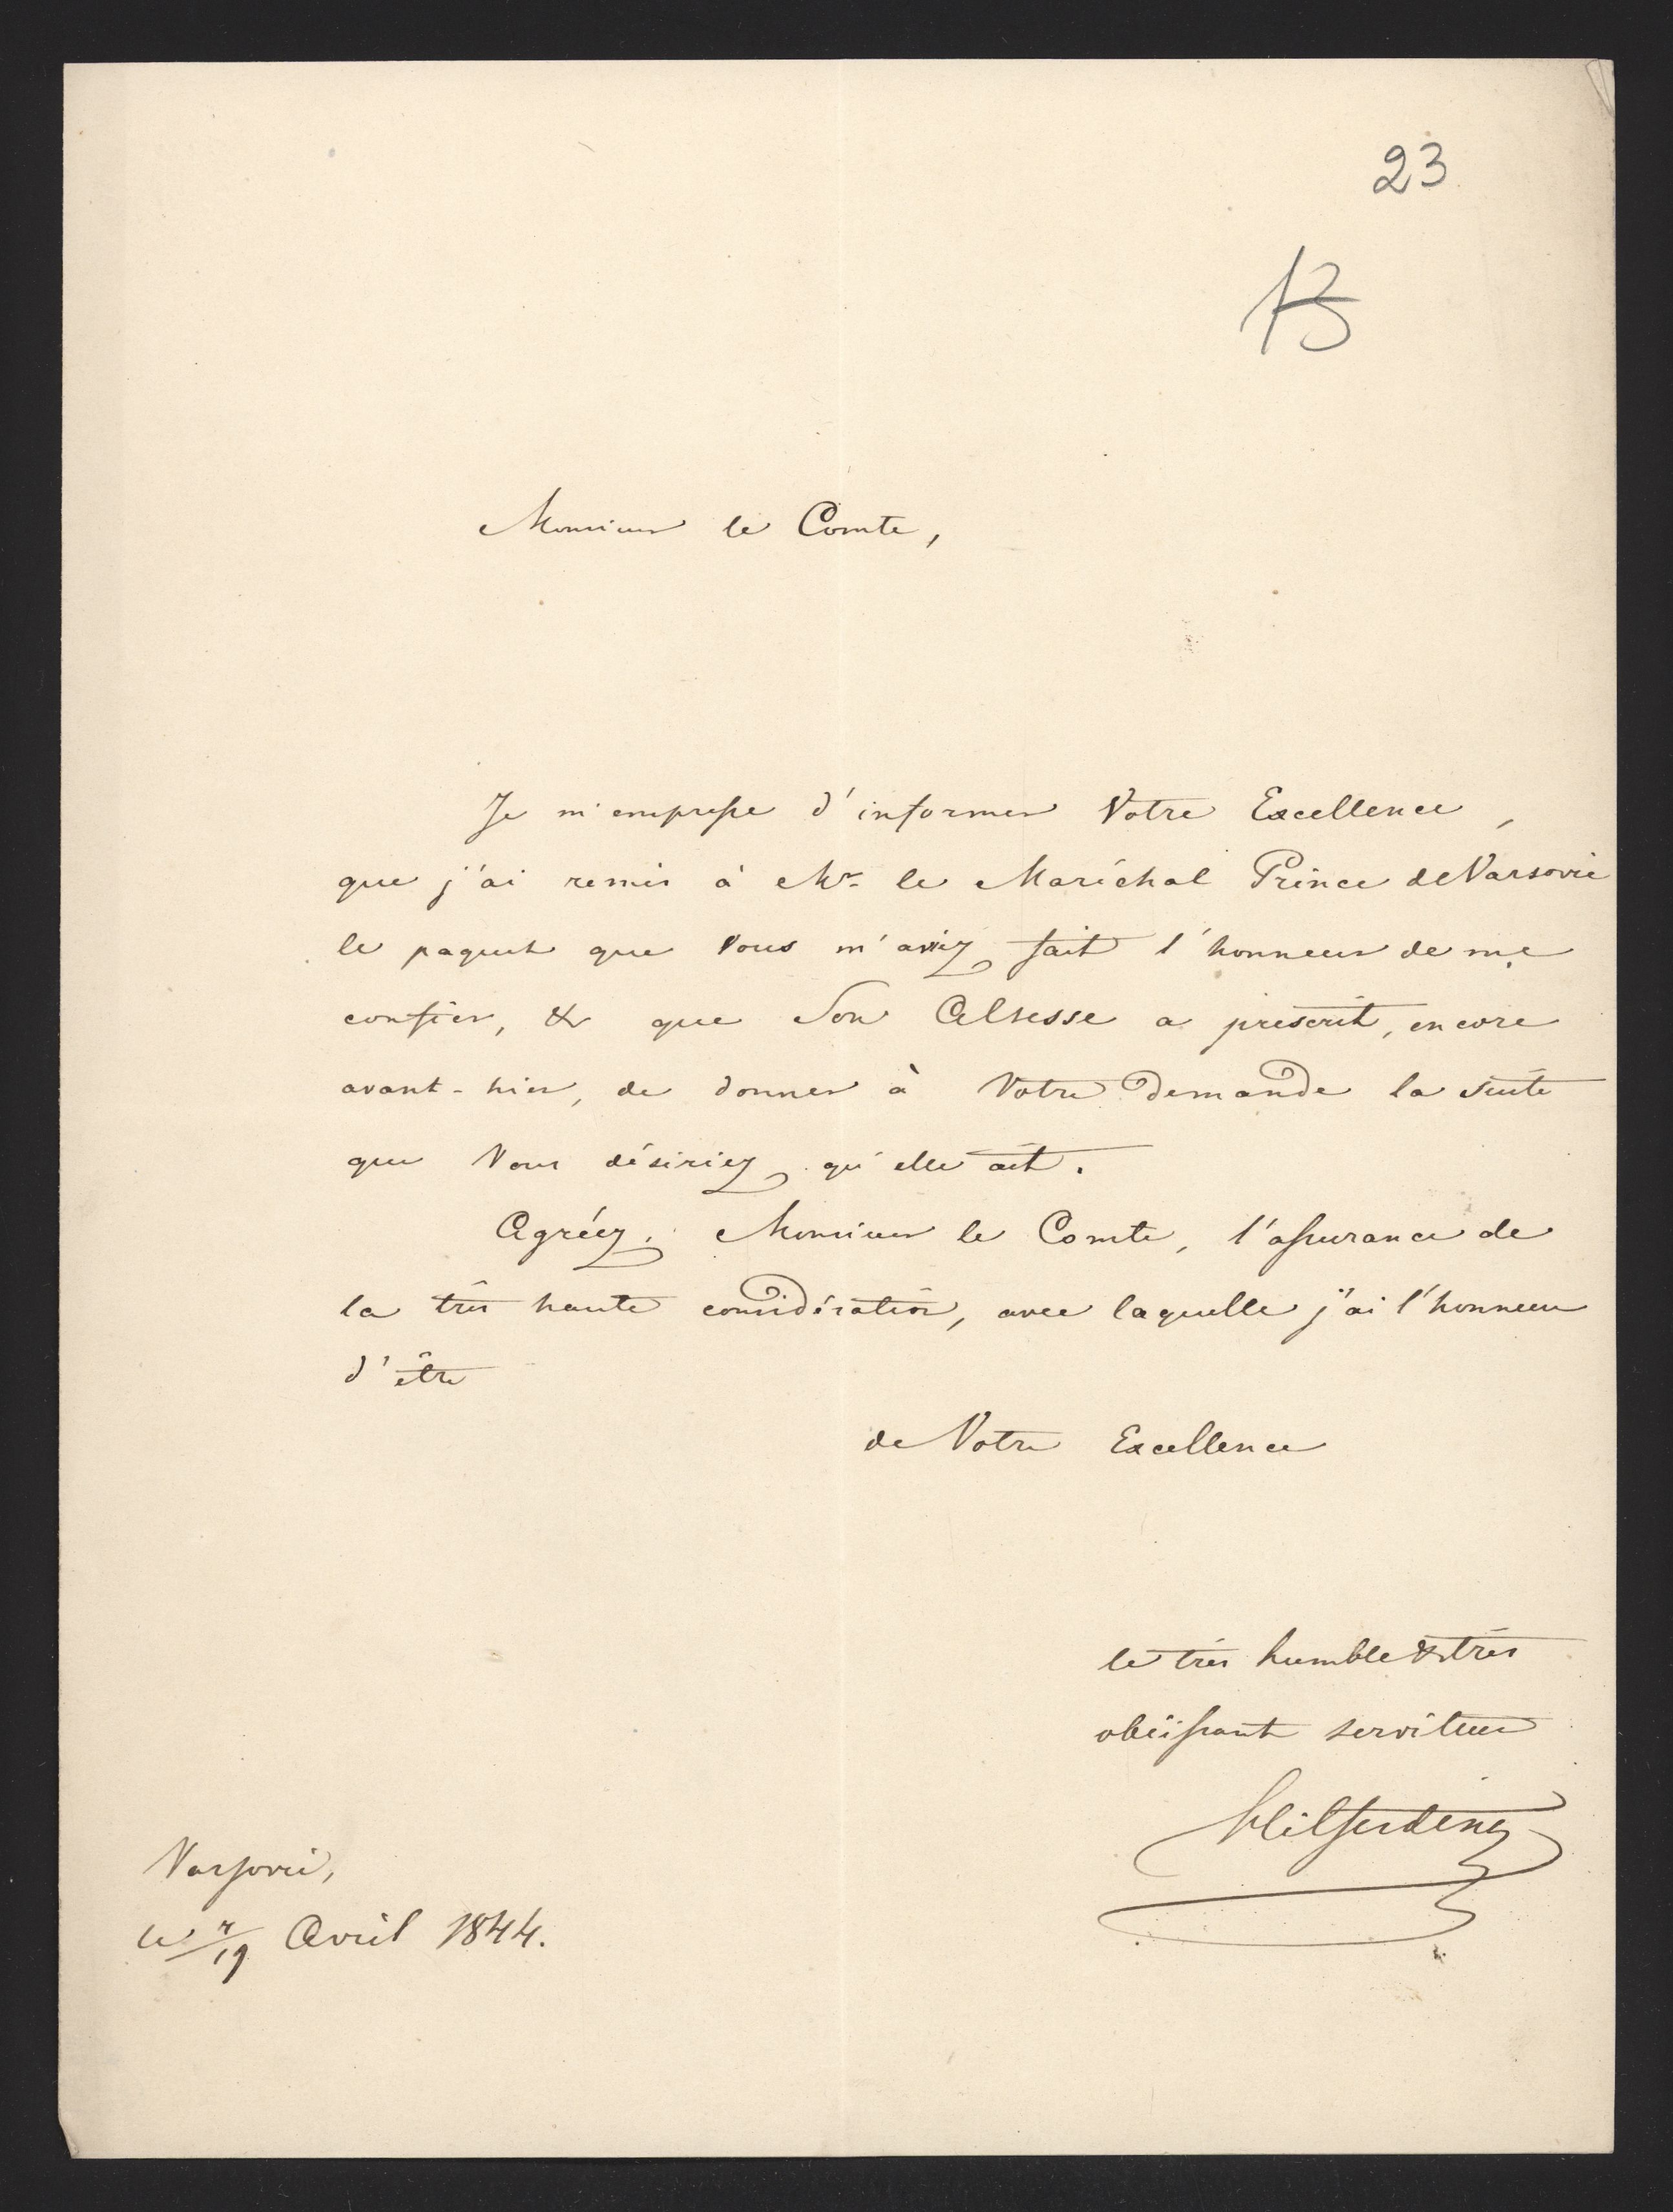 23
13
Monsieur le Comte,
Je m'empresse d'informer Votre Excellence,
que j'ai remis à Mr. le Maréchal Prince de Varsovie
le paquet que Vous m'aviez fait l'honneur de me
confier, & que Son Altesse a prescrit, encore
avant-hier, de donner à Votre demande la suite
que Vous désiriez qu'elle ait.
Agréez, Monsieur le Comte, l'assurance de
la très haute considération, avec laquelle j'ai l'honneur
d'être
de Votre Excellence
le très humble & très
obéissant serviteur
Hilferding
Varsovie,
le 7/19 Avril 1844.